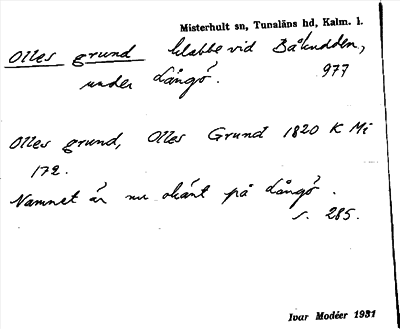 Misterhult sn, Tunaläns hd, Kalm. l.
Olles grund klabbe vid Båkudden,
under Långö. 977
Olles grund, Olles Grund 1820 K Mi
172.
Namnet är nu okänt på Långö.
s. 285.
Ivar Modéer 1931